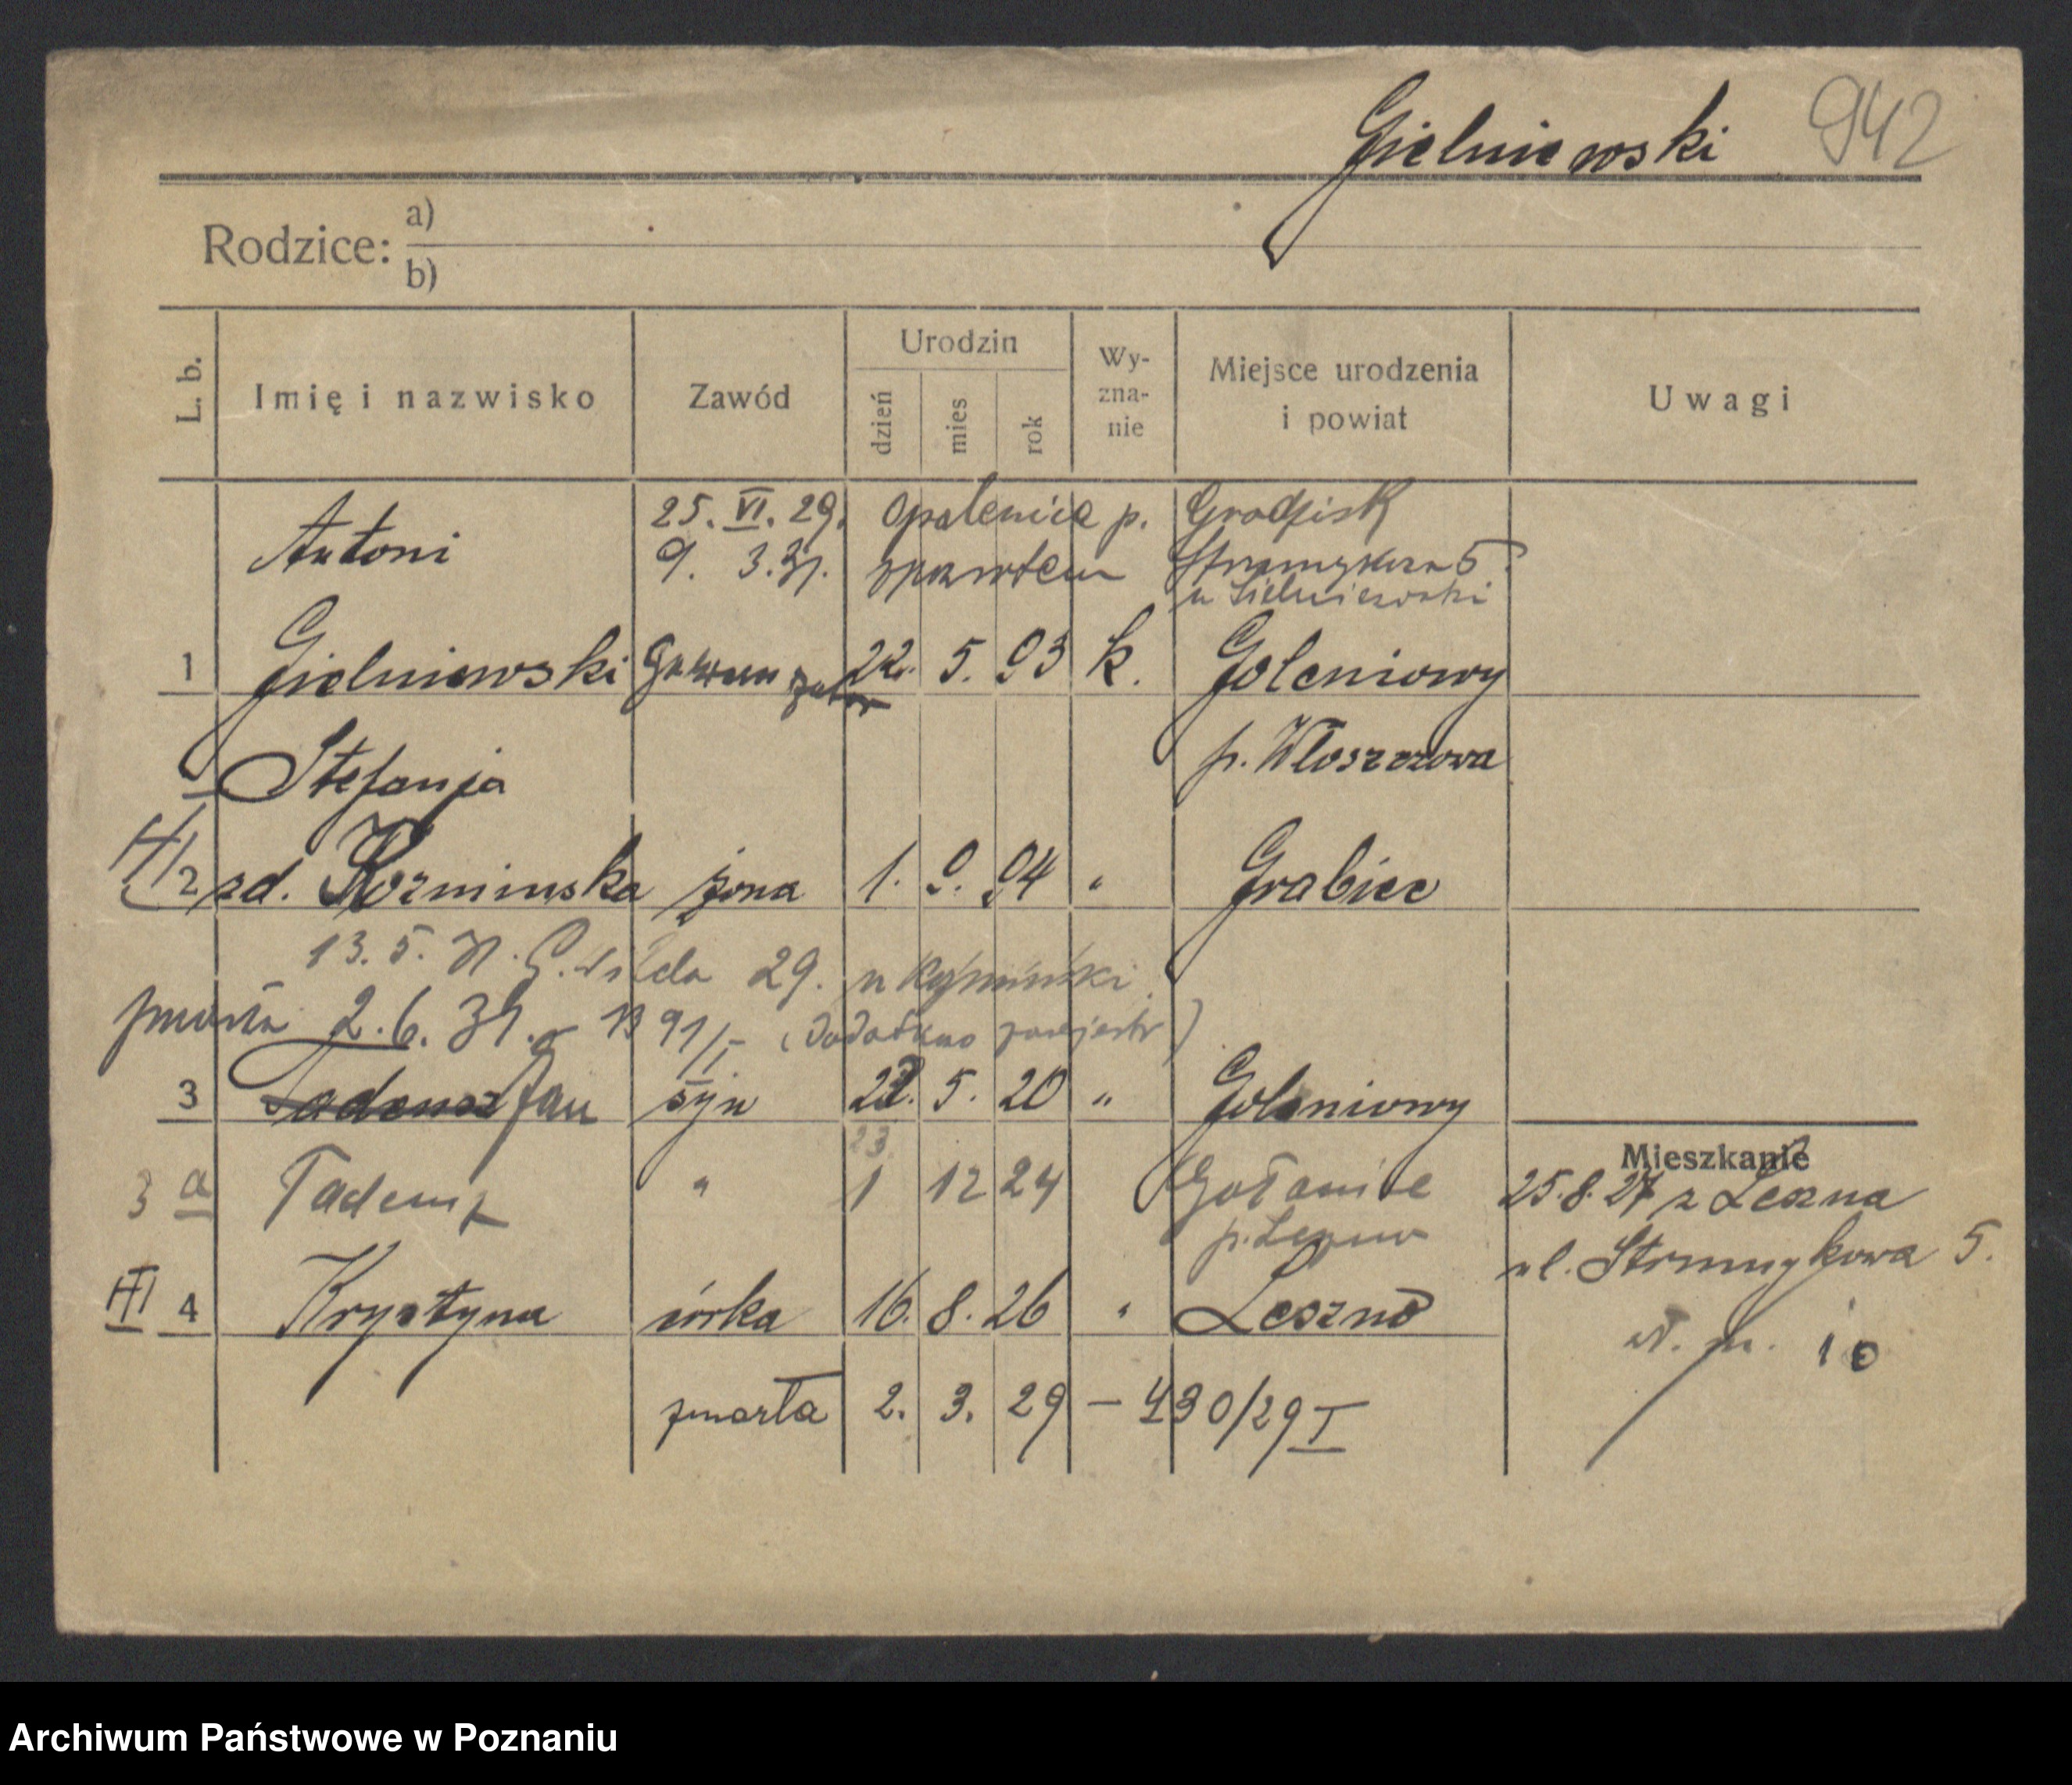 Gielniewski 942
Rodzice: a)
b)
L. b. Imię i nazwisko Zawód Urodzin dzień mies rok Wy-zna-nie Miejsce urodzenia i powiat Uwagi
Antoni 25. VI. 29. Opalenica p. Grodzisk
9. 3. 31. 5
u Gielniewski
1 Gielniewski 22. 5. 93 k. Goleniowy
p. Włoszczowa
Stefanja
2 zd. Kozminska żona 1. 9. 94 " Grabiec
13. 5. 31. G. Wilda 29. u
zmarła 2. 6. 31. (Dodatkowo zarejestr)
3 Tadeusz Jan syn 22. 5. 20 " Goleniowy
23
Mieszkanie
3 a Tadeusz " 1 12 24 Gołanice
p. Leszno
25. 8. 27 z Leszna
ul. Strumykowa 5.
III 4 Krystyna córka 16. 8. 26 " Leszno
W. m. 10
zmarła 2. 3. 29 – 430/29 I
Archiwum Państwowe w Poznaniu